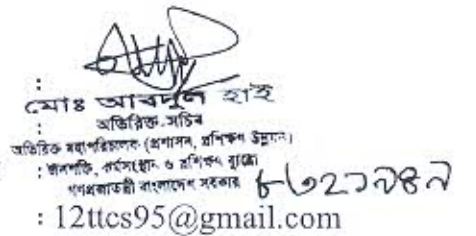 :
মোঃ আবদুল হাই
:
অতিরিক্ত সচিব
অতিরিক্ত মহাপরিচালক (প্রশাসন, প্রশিক্ষণ উন্নয়ন)
: জনশক্তি, কর্মসংস্থান ও প্রশিক্ষণ ব্যুরো
গণপ্রজাতন্ত্রী বাংলাদেশ সরকার ৮৩২১৭৪৯
: 12ttcs95@gmail.com